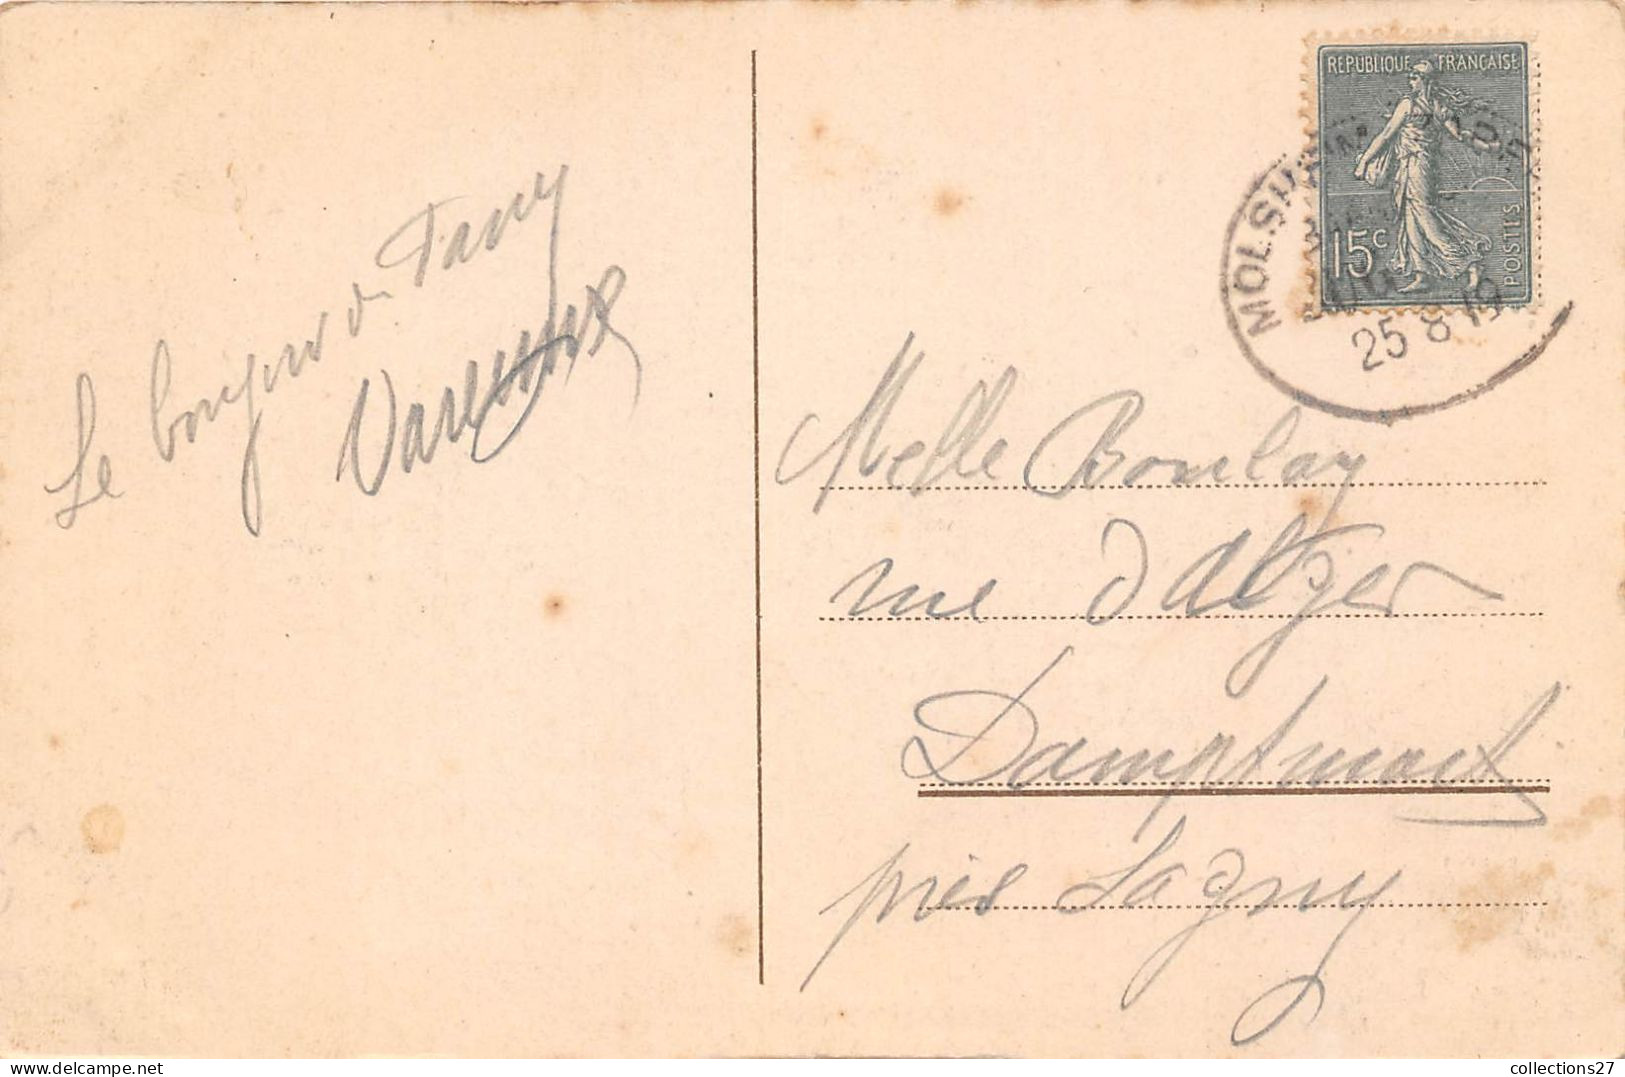 Le bonjour de Fany
Varenne
RÉPUBLIQUE FRANÇAISE
15c
POSTES
MOLSHEIM
25 8 19
Melle Boulay
rue d'Alger
Dampmart
près Lagny
collections27